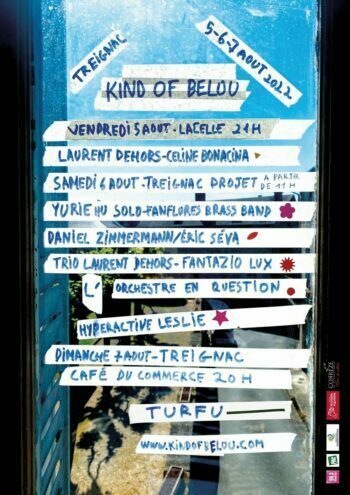 TREIGNAC
5-6-7 AOUT 2022
KIND OF BELOU
VENDREDI 5 AOUT - LACELLE 21H
LAURENT DEHORS - CELINE BONACINA
SAMEDI 6 AOUT - TREIGNAC PROJET A PARTIR DE 11H
YURIE HU SOLO - FANFLURES BRASS BAND
DANIEL ZIMMERMANN/ÉRIC SÉVA
TRIO LAURENT DEHORS - FANTAZIO LUX
L' ORCHESTRE EN QUESTION
HYPERACTIVE LESLIE
DIMANCHE 7 AOUT - TREIGNAC
CAFÉ DU COMMERCE 20H
TURFU
WWW.KINDOFBELOU.COM
CORRÈZE